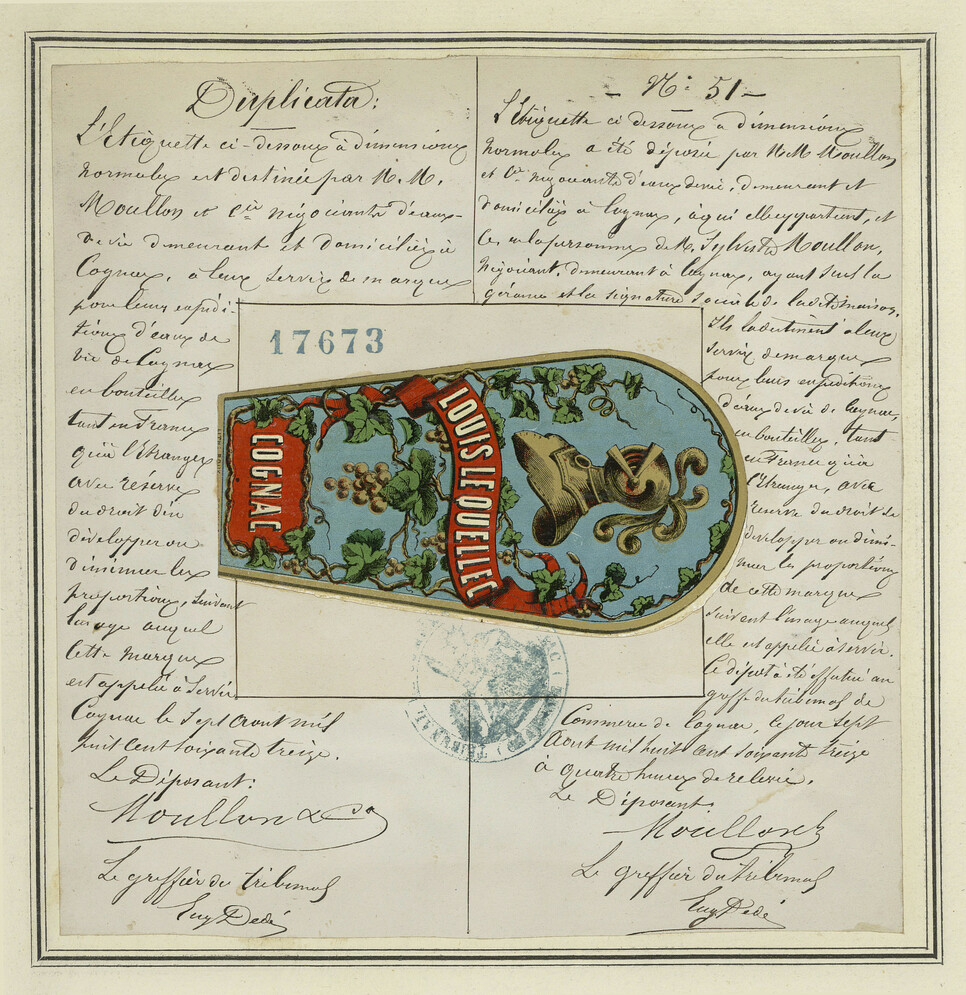 Duplicata:
L'étiquette ci-dessous a dimensions
normales est destinée par M.M.
Moullon et Cie négociants d'eaux-
de-vie demeurant et domiciliés à
Cognac, à leur servir de marque
pour leurs expédi-
tions d'eaux de
vie de Cognac
en bouteilles
tant en France
qu'à l'étranger
avec réserve
du droit d'en
développer ou
diminuer les
proportions, suivant
l'usage auquel
cette marque
est appelée à servir
Cognac le sept août mil
huit cent soixante treize.
Le Déposant:
Moullon & Co
Le greffier du tribunal
Eug Dedé
- No: 51 -
L'étiquette ci dessous a dimensions
normales a été déposée par M.M. Moullon
et Cie négociants d'eaux devie, demeurant et
domiciliés à Cognac, à qui elle appartient, et
en la personne de M. Sylvestre Moullon,
négociant, demeurant à Cognac, ayant seul la
gérance et la signature sociale de la dite maison.
Ils la destinent à leur
servir de marque
pour leurs expéditions
d'eaux de vie de Cognac
en bouteilles, tant
en France qu'à
l'étranger, avec
réserve du droit de
développer ou dimi-
nuer les proportions
de cette marque
suivant l'usage auquel
elle est appelée à servir.
Ce dépôt a été effectué au
greffe du tribunal de
Commerce de Cognac, le jour sept
Août mil huit cent soixante treize
à quatre heures de relevée.
Le Déposant:
Moullon &
Le greffier du tribunal
Eug Dedé
17673
COGNAC
LOUIS LE QUELLEC